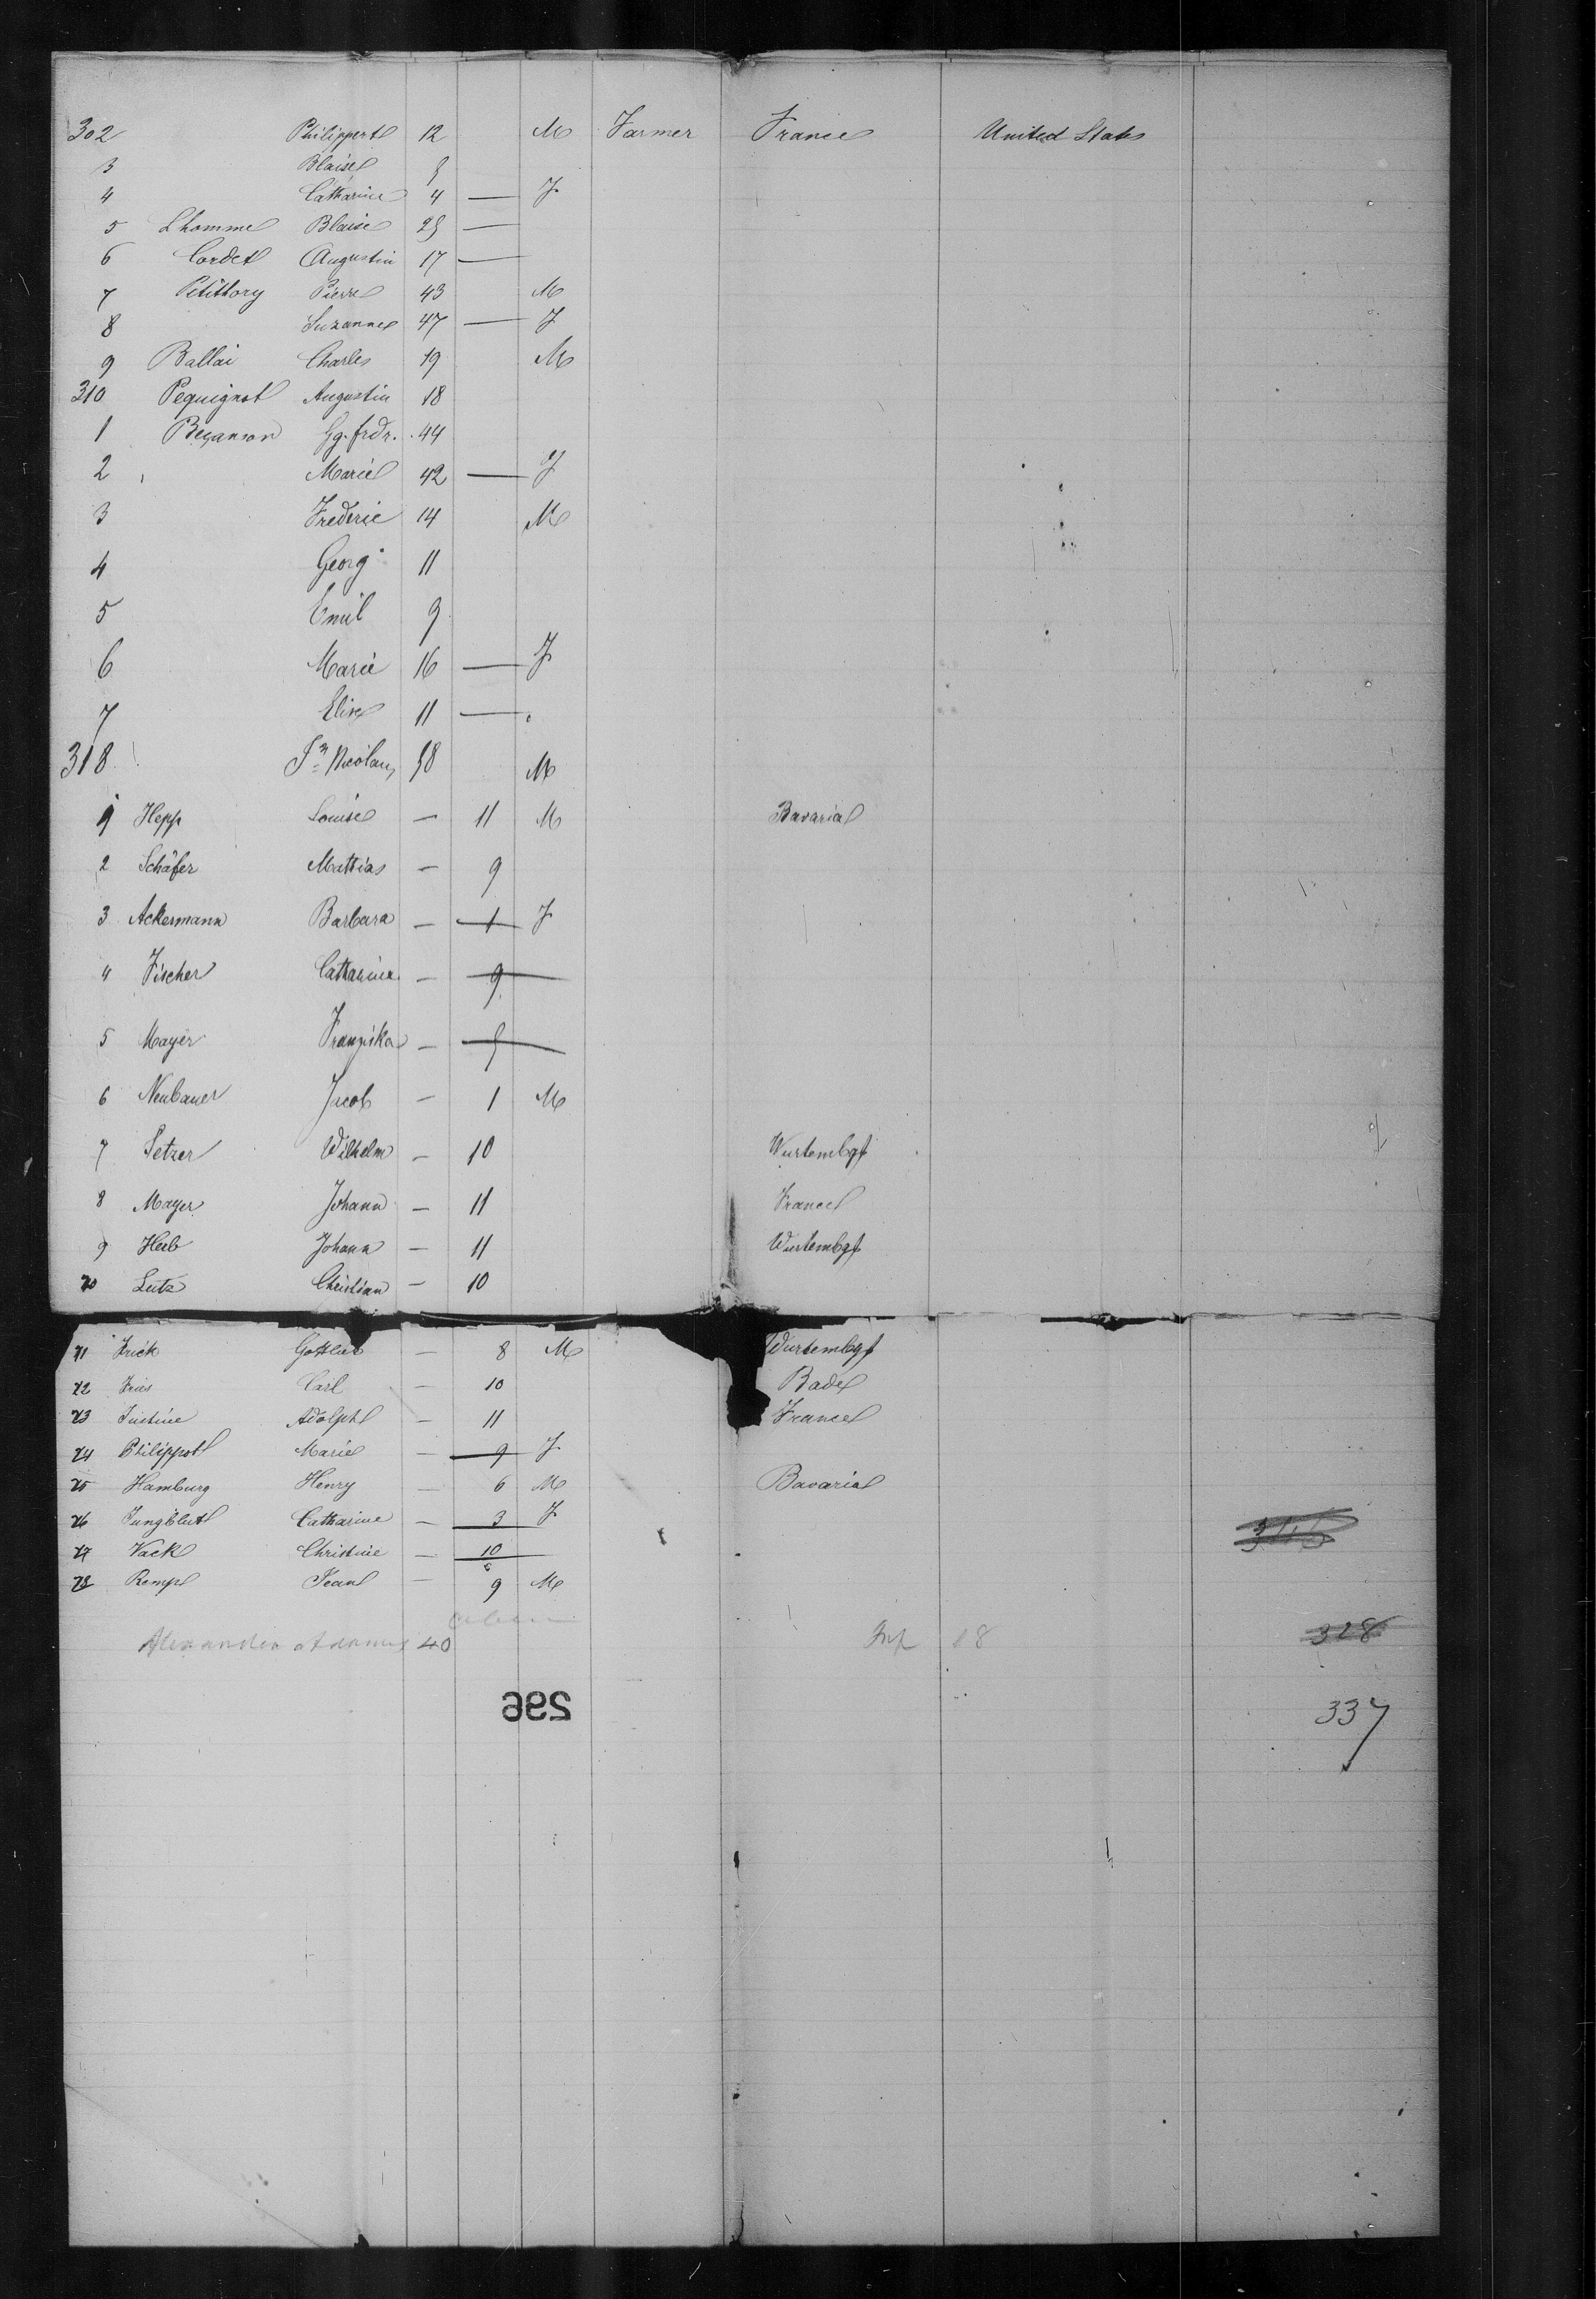 302 Philippert 12 M Farmer France United States
3 Blaise 5
4 Catharine 4 — F
5 Lhomme Blaise 25 —
6 Cordet Augustin 17 —
7 Petittory Pierre 43 M
8 Suzanne 47 — F
9 Ballai Charles 19 M
310 Pequignot Augustin 18
1 Beçanson Gg. frdr. 44
2 Marie 42 — F
3 Frederic 14 M
4 Georg 11
5 Emil 9
6 Marie 16 — F
7 Elise 11 —
318 Nicolaus 58 M
1 Hepp Louise — 11 M Bavaria
2 Schäfer Mattias — 9
3 Ackermann Barbara — 1 F
4 Fischer Catharine — 9
5 Mayer Franziska — 5
6 Neubauer Jacob — 1 M
7 Setzer Wilhelm — 10 Wurtembg
8 Mayer Johann — 11 France
9 Heb Johann — 11 Wurtembg
10 Lutz Christian — 10
11 Frick Gottlieb — 8 M Wurtembg
12 Fries Carl — 10 Bade
13 Justine Adolph — 11 France
14 Philippot Marie — 9 F
15 Hamburg Henry — 6 M Bavaria
16 Jungblut Catharine — 3 F
17 Vack Christine — 10
18 Rempe Jean — 9 M
Alexander 40 Inf 18 328
296 337